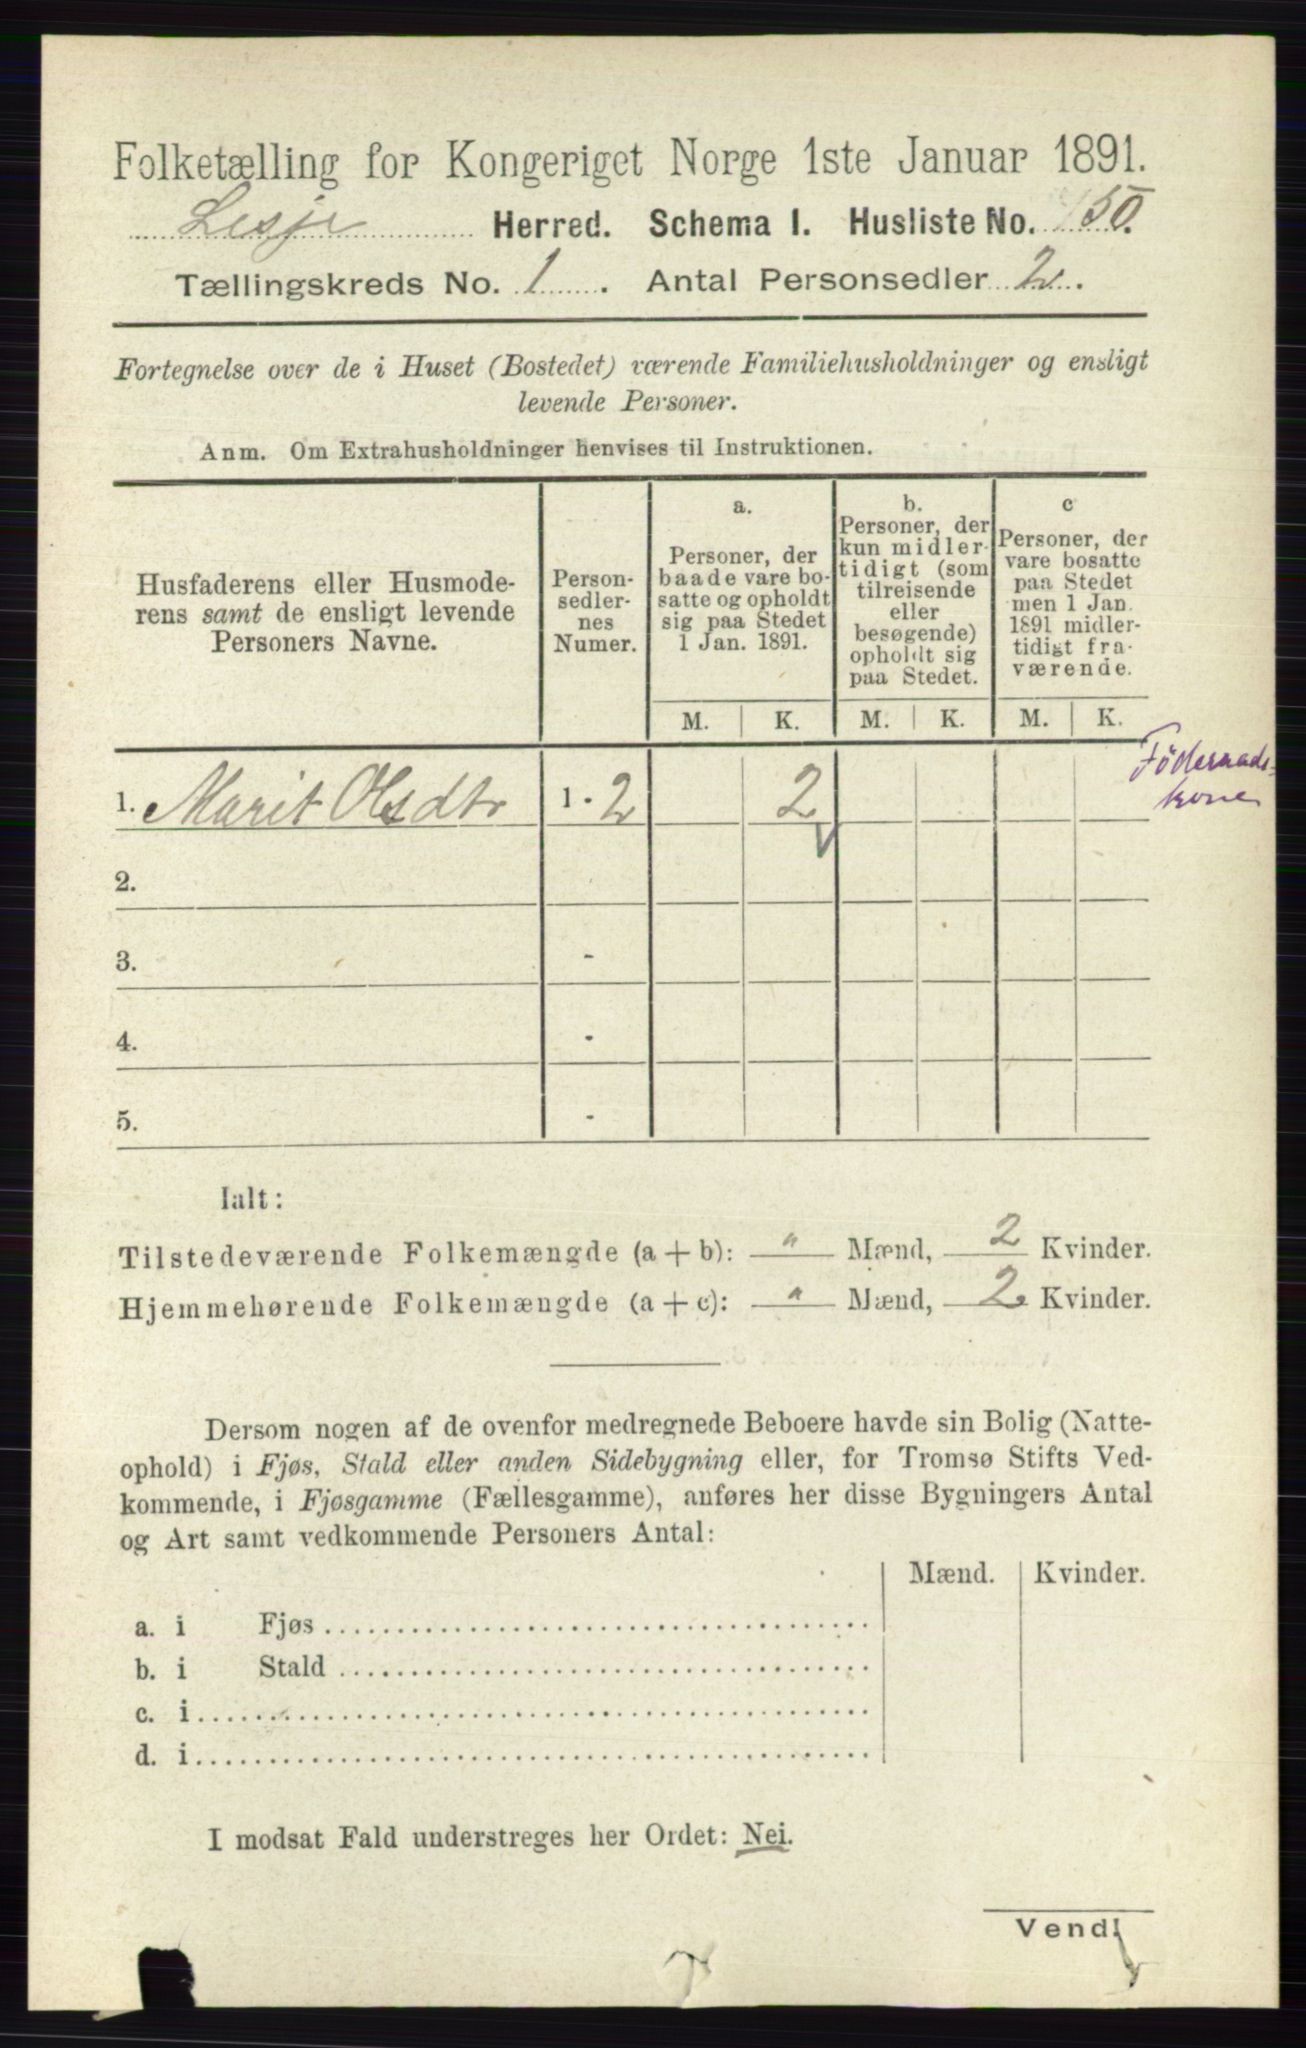 Folketælling for Kongeriget Norge 1ste Januar 1891.
Lesje Herred. Schema I. Husliste No. 150.
Tællingskreds No. 1. Antal Personsedler 2.
Fortegnelse over de i Huset (Bostedet) værende Familiehusholdninger og ensligt
levende Personer.
Anm. Om Extrahusholdninger henvises til Instruktionen.
Husfaderens eller Husmode-
rens samt de ensligt levende
Personers Navne.
Person-
sedler-
nes
Numer.
a.
Personer, der
baade vare bo-
satte og opholdt
sig paa Stedet
1 Jan. 1891.
b.
Personer, der
kun midler-
tidigt (som
tilreisende
eller
besøgende)
opholdt sig
paa Stedet.
c
Personer, der
vare bosatte
paa Stedet
men 1 Jan.
1891 midler-
tidigt fra-
værende.
M. K. M. K. M. K.
Föderaads-
kone
1. Marit Olsdtr 1 - 2 2
2.
3. -
4. -
5. -
Ialt:
Tilstedeværende Folkemængde (a + b): " Mænd, 2 Kvinder.
Hjemmehørende Folkemængde (a + c): " Mænd, 2 Kvinder.
Dersom nogen af de ovenfor medregnede Beboere havde sin Bolig (Natte-
ophold) i Fjøs, Stald eller anden Sidebygning eller, for Tromsø Stifts Ved-
kommende, i Fjøsgamme (Fællesgamme), anføres her disse Bygningers Antal
og Art samt vedkommende Personers Antal:
Mænd. Kvinder.
a. i Fjøs
b. i Stald
c. i
d. i
I modsat Fald understreges her Ordet: Nei.
Vend!